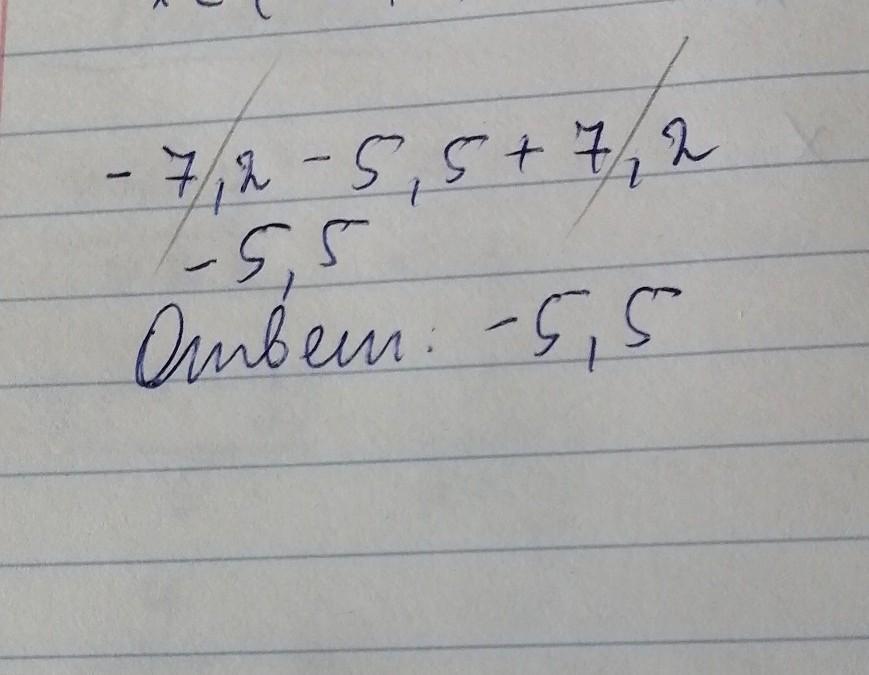 -7,2-5,5+7,2
-5,5
Ответ: -5,5